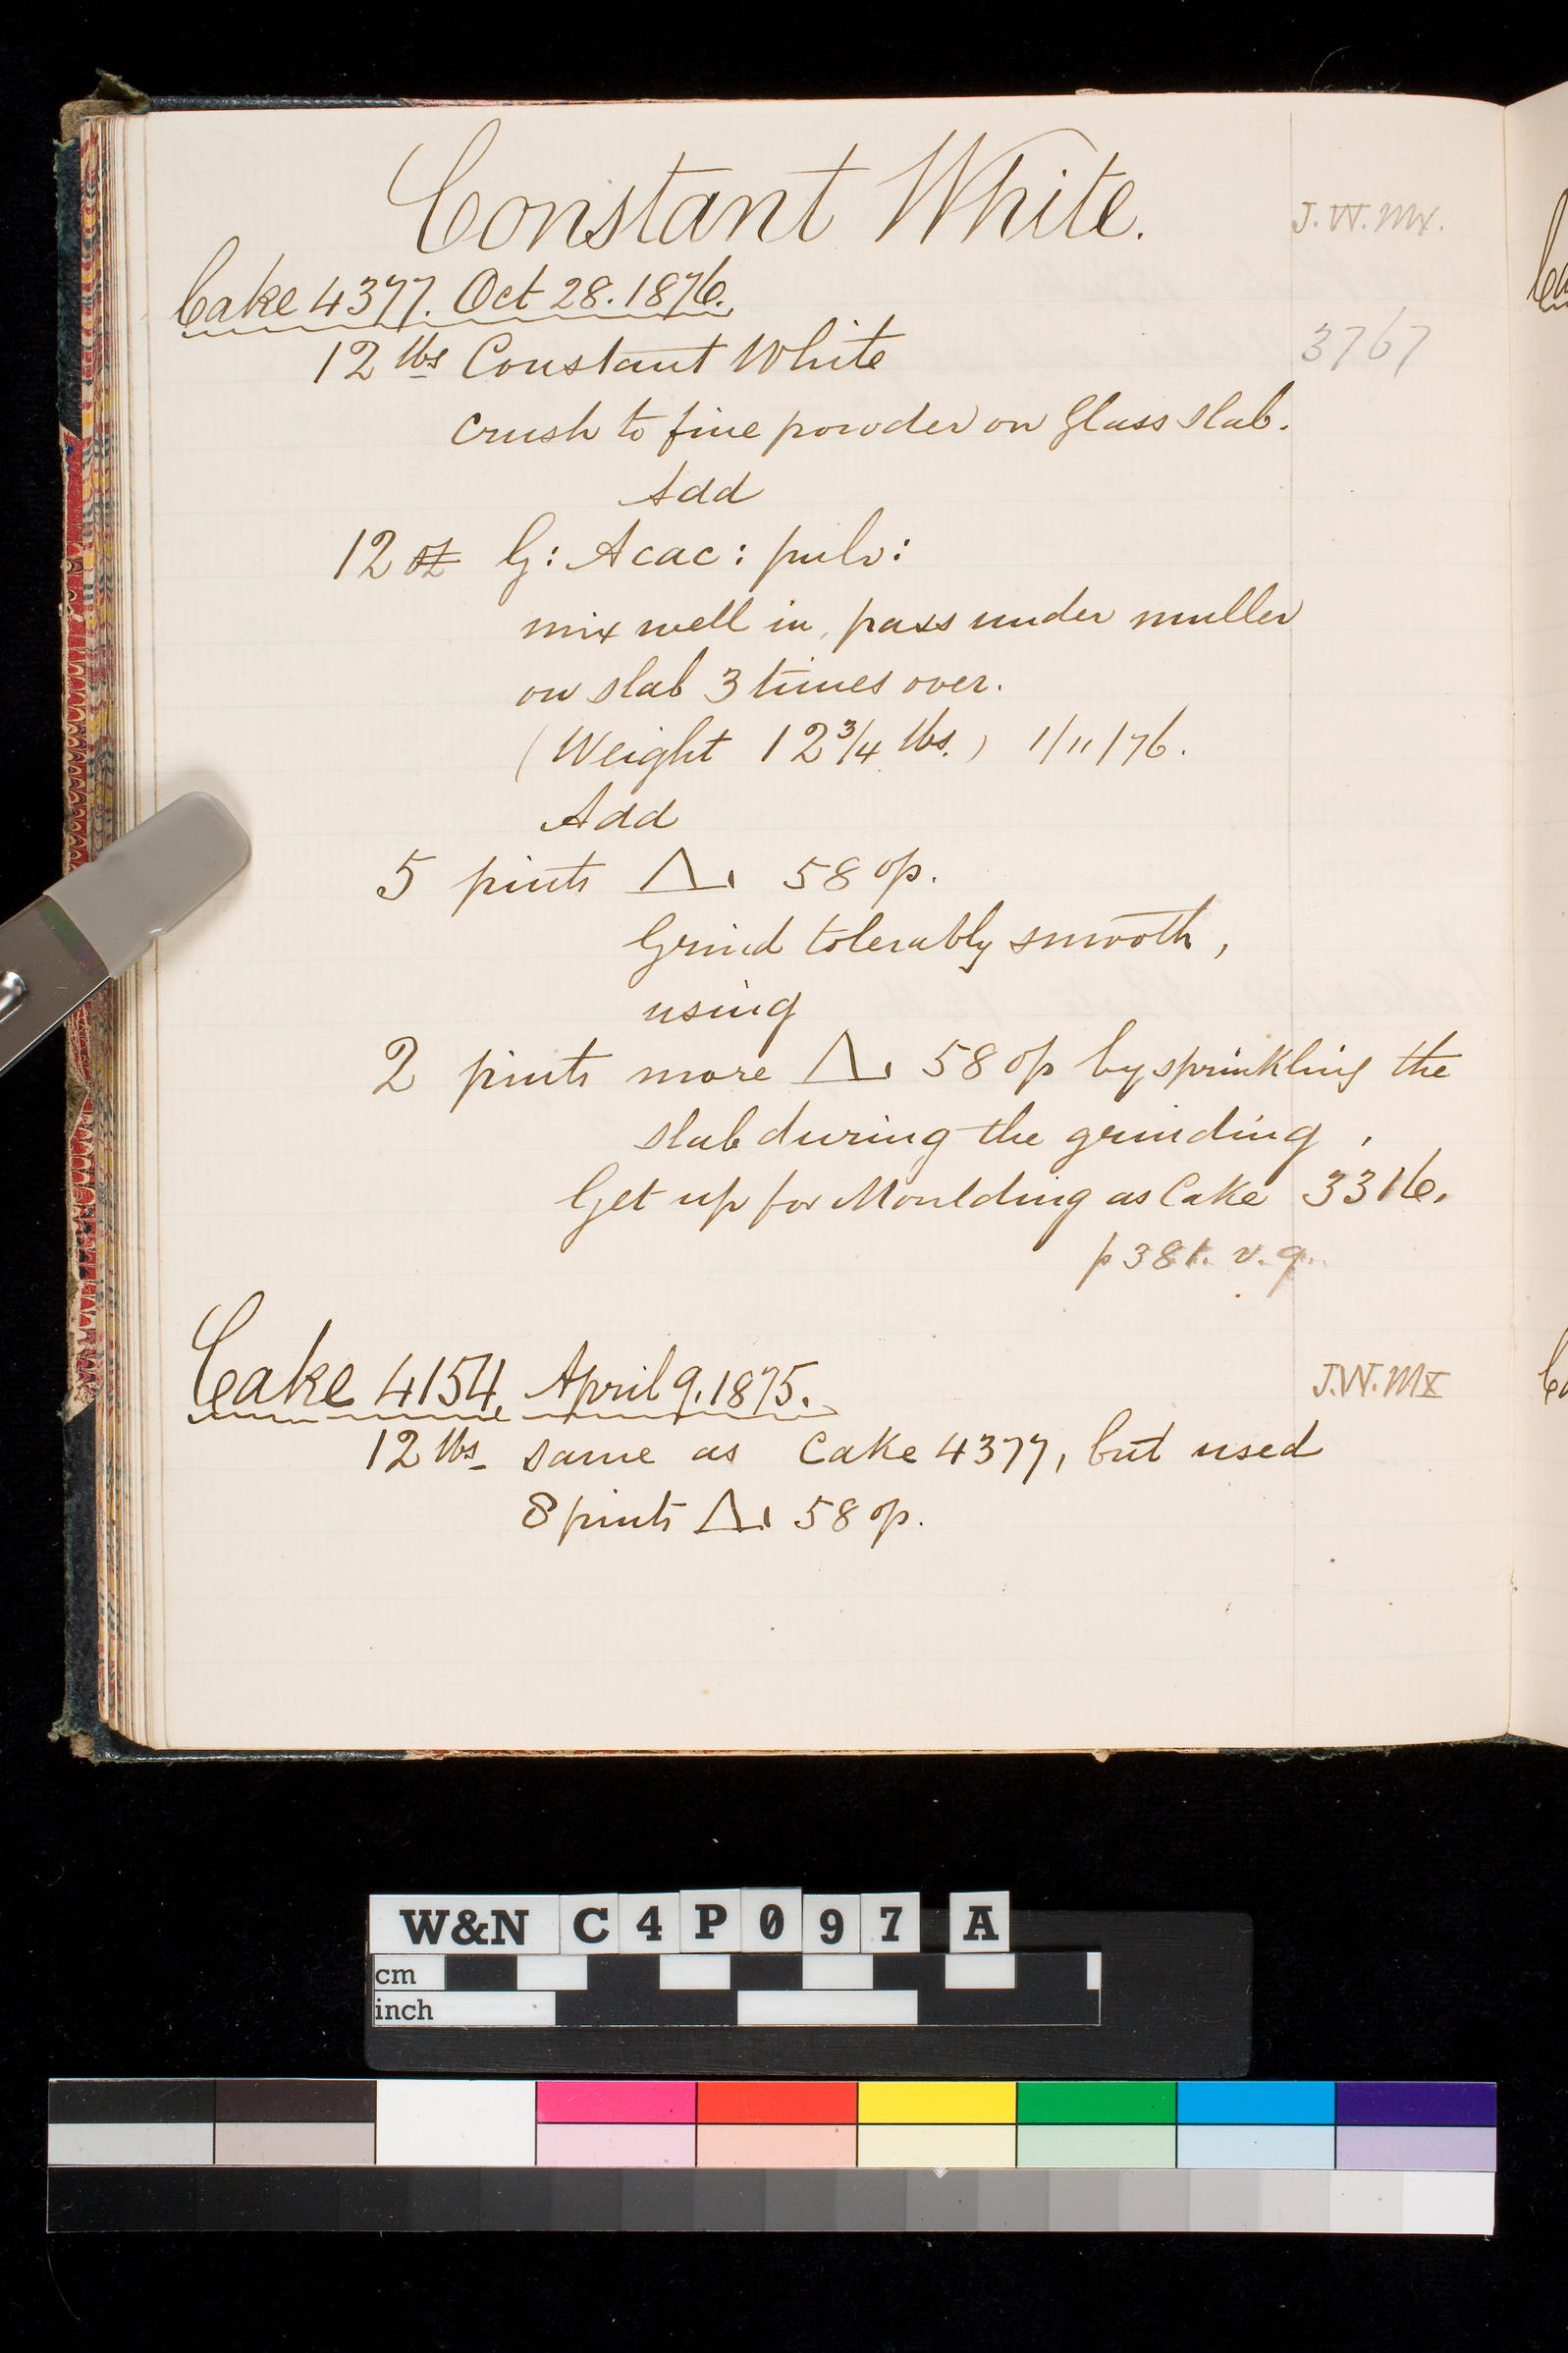 Constant White.
J. W. Mx.
Cake 4377. Oct 28. 1876.
3767
12 lbs Constant White
crush to fine powder on Glass slab.
Add
12 oz G: Acac: pulv:
mix well in, pass under muller
on slab 3 times over.
(Weight 12 3/4 lbs.) 1/11/76.
Add
5 pints Δ. 58 op.
Grind tolerably smooth,
using
2 pints more Δ. 58 op by sprinkling the
slab during the grinding.
Get up for Moulding as Cake 3316.
p 381. v. q.
Cake 4154, April 9. 1875.
J.W. Mx
12 lbs same as Cake 4377, but used
8 pints Δ. 58 op.
W&N C4P097 A
cm
inch